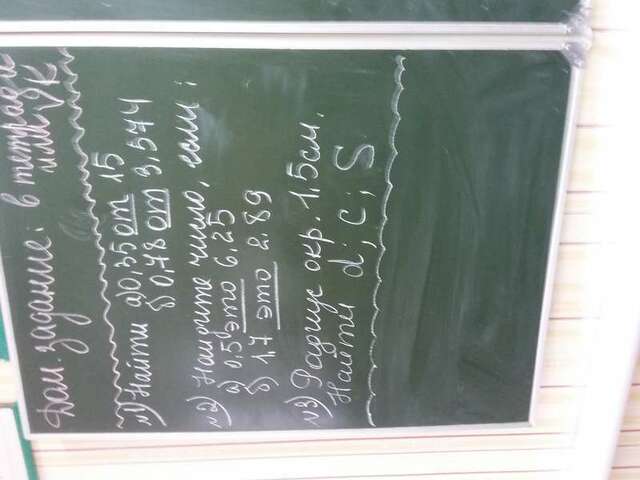 Дом. задание: в тетради
или VK
№1) Найти а) 0,35 от 15
б) 0,78 от 3,574
№2) Найдите число, если:
а) 0,5 это 6,25
б) 1,7 это 2.89
№3) Радиус окр. 1,5см.
Найти d; c; S